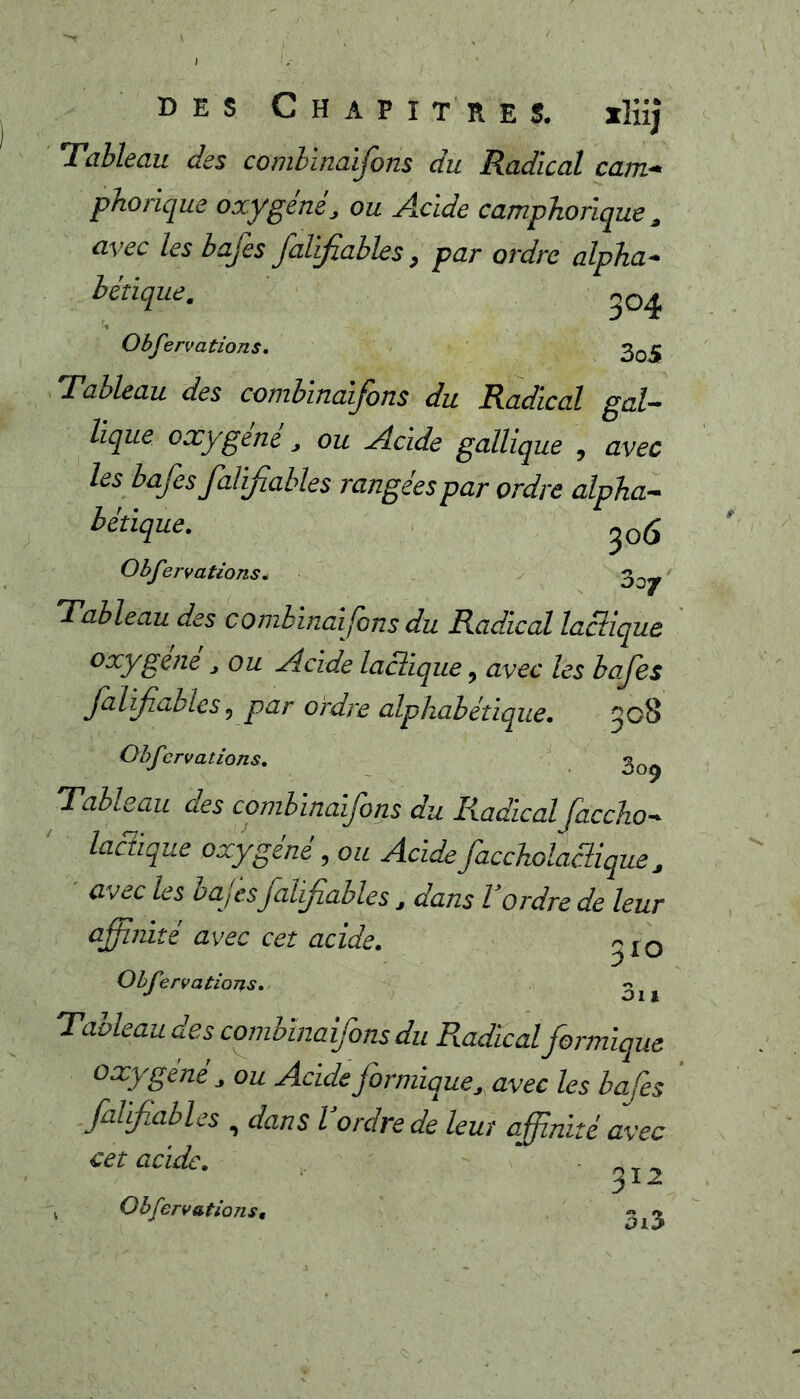 DES CHAPITRES. xliij
Tableau des combinaiſons du Radical cam-
phorique oxygéné, ou Acide camphorique,
avec les baſes ſalifiables, par ordre alpha-
bétique. 304
Obſervations. 305
Tableau des combinaiſons du Radical gal-
lique oxygéné, ou Acide gallique, avec
les baſes ſalifiables rangées par ordre alpha-
bétique. 306
Obſervations. 307
Tableau des combinaiſons du Radical lactique
oxygéné, ou Acide lactique, avec les baſes
ſalifiables, par ordre alphabétique. 308
Obſervations. 309
Tableau des combinaiſons du Radical ſaccho-
lactique oxygéné, ou Acide ſaccholactique,
avec les baſes ſalifiables, dans l'ordre de leur
affinité avec cet acide. 310
Obſervations. 311
Tableau des combinaiſons du Radical formique
oxygéné, ou Acide formique, avec les baſes
ſalifiables, dans l'ordre de leur affinité avec
cet acide. 312
Obſervations. 313